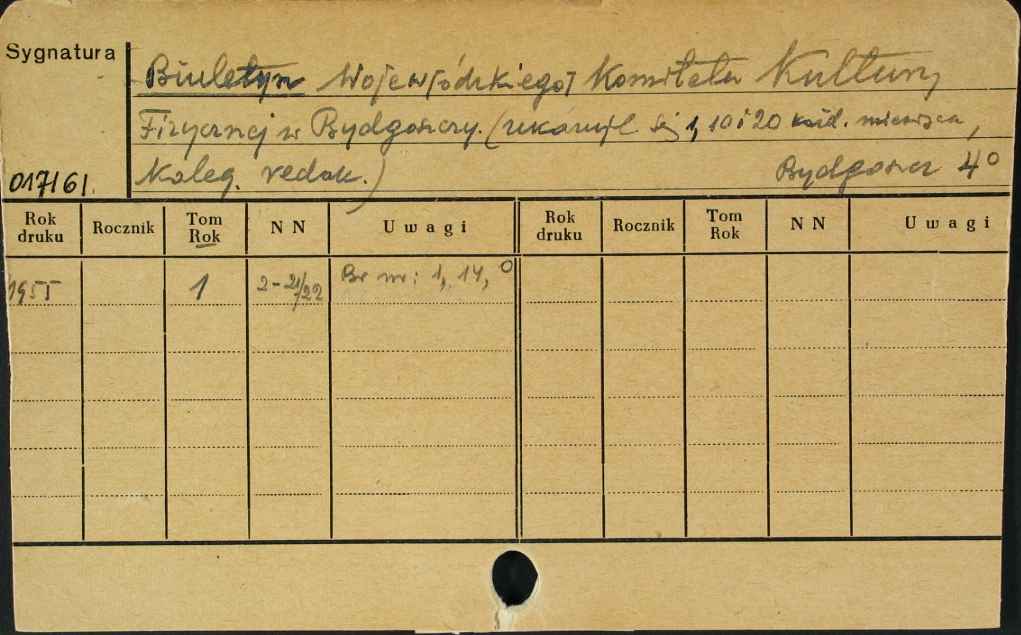 Sygnatura
Biuletyn Wojewódzkiego Komitetu Kultury
Fizycznej w Bydgoszczy. (ukazuje się 1, 10 i 20 każd. miesiąca,
Koleg. redak.) Bydgoszcz 4°
017161.
Rok druku Rocznik Tom Rok NN Uwagi Rok druku Rocznik Tom Rok NN Uwagi
1955 1 2-21/22 Br nr: 1, 14,